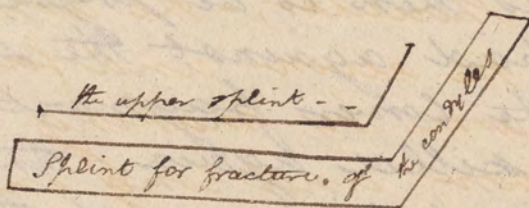 the upper splint - -
Splint for fracture. of the condyles